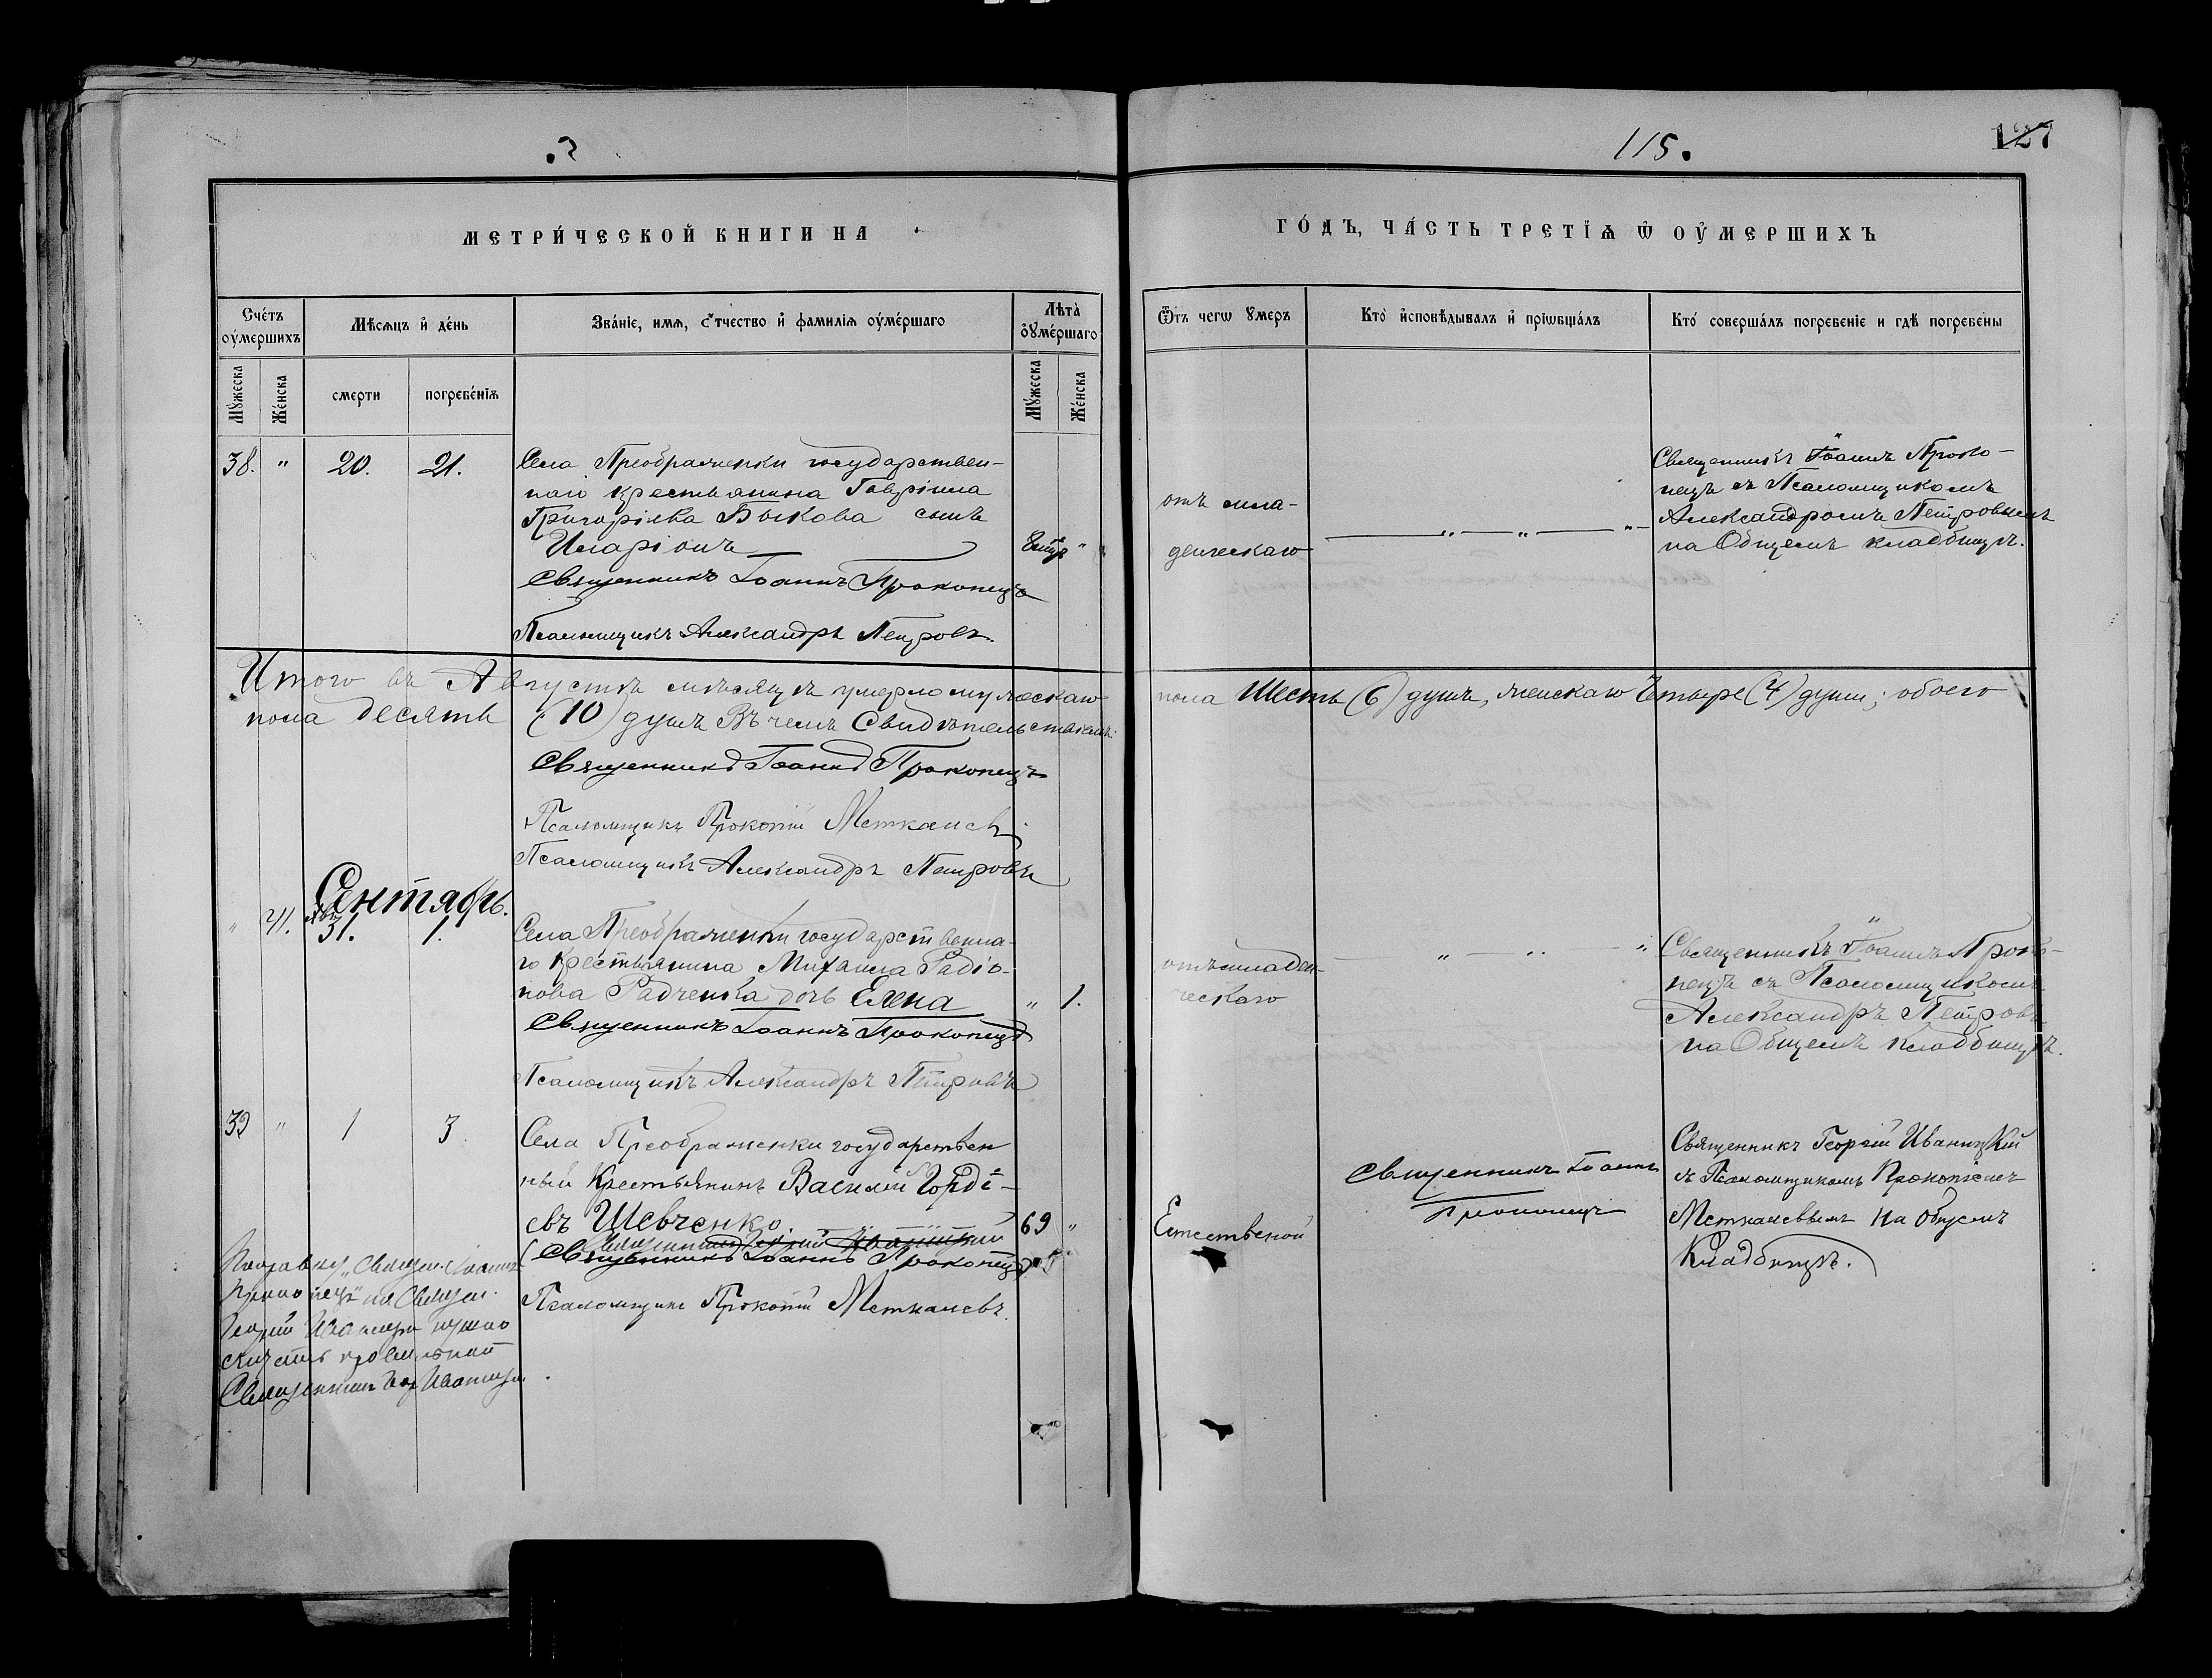 115.
127
МЕТРИ́ЧЕСКОЙ КНИГИ НА
ГО́ДЪ, ЧА́СТЬ ТРЕТІѦ Ѡ҆ ОУ҆МЕРШИХЪ
Сче́тъ оу҆мершихъ
Мѣсѧцъ и҆ де́нь
Зва́нїе, имѧ, ѻ҆тчество и҆ фамилїѧ оу҆ме́ршаго
Лѣта̀ оу҆ме́ршаго
Ѿтъ чегѡ ᲂумеръ
Кто̀ и҆сповѣ́дывалъ и҆ прїѡбща́лъ
Кто́ соверша́лъ погребе́нїе и гдѣ̀ погребе́ны
Мꙋ́жеска
Же́нска
смерти
погребе́нїѧ
Мꙋ́жеска
Же́нска
38. " 20. 21.
Села Преображенки государствен-
наго крестьянина Гавріила
Григоріева Быкова сынъ
Иларіонъ
Священникъ Іоаннъ Прокопецъ
Псаломщикъ Александръ Петровъ.
отъ мла-
денческаго
Священникъ Іоаннъ Проко-
пецъ съ Псаломщикомъ
Александромъ Петровымъ
на Общемъ кладбищѣ.
Итого въ Августѣ мѣсяцѣ умерло мужескаго
пола Шесть (6) душъ, женскаго Четыре (4) души; обоего
пола десять (10) душъ Въ чемъ Свидѣтельствуемъ:
Священникъ Іоаннъ Прокопецъ
Псаломщикъ Прокопій Меткалевъ.
Псаломщикъ Александръ Петровъ
Сентябрь.
" 41. Авг. 31. 1.
Села Преображенки государственна-
го крестьянина Михаила Радіо-
нова Радченка дочь Елена
" 1.
Священникъ Іоаннъ Прокопецъ
Псаломщикъ Александръ Петровъ
отъ младен-
ческаго
Священникъ Іоаннъ Проко-
пецъ съ Псаломщикомъ
Александръ Петровъ
на Общемъ кладбищѣ.
39 " 1 3.
Села Преображенки государствен
ный Крестьянинъ Василій Горді-
евъ Шевченко.
69 "
Священникъ Георгій Иваницкій
Священникъ Іоаннъ Прокопецъ
Псаломщикъ Прокопій Меткалевъ.
Естественой
Священникъ Іоаннъ
Прокопецъ
Священникъ Георгій Иваницкій
съ Псаломщикомъ Прокопіемъ
Меткалевымъ на Общемъ
Кладбищѣ.
Священ. Іоаннъ
Прокопецъ" на Священ.
Георгій Иваницкій нужно
считать правильной
Священникъ Геор. Иваницкій